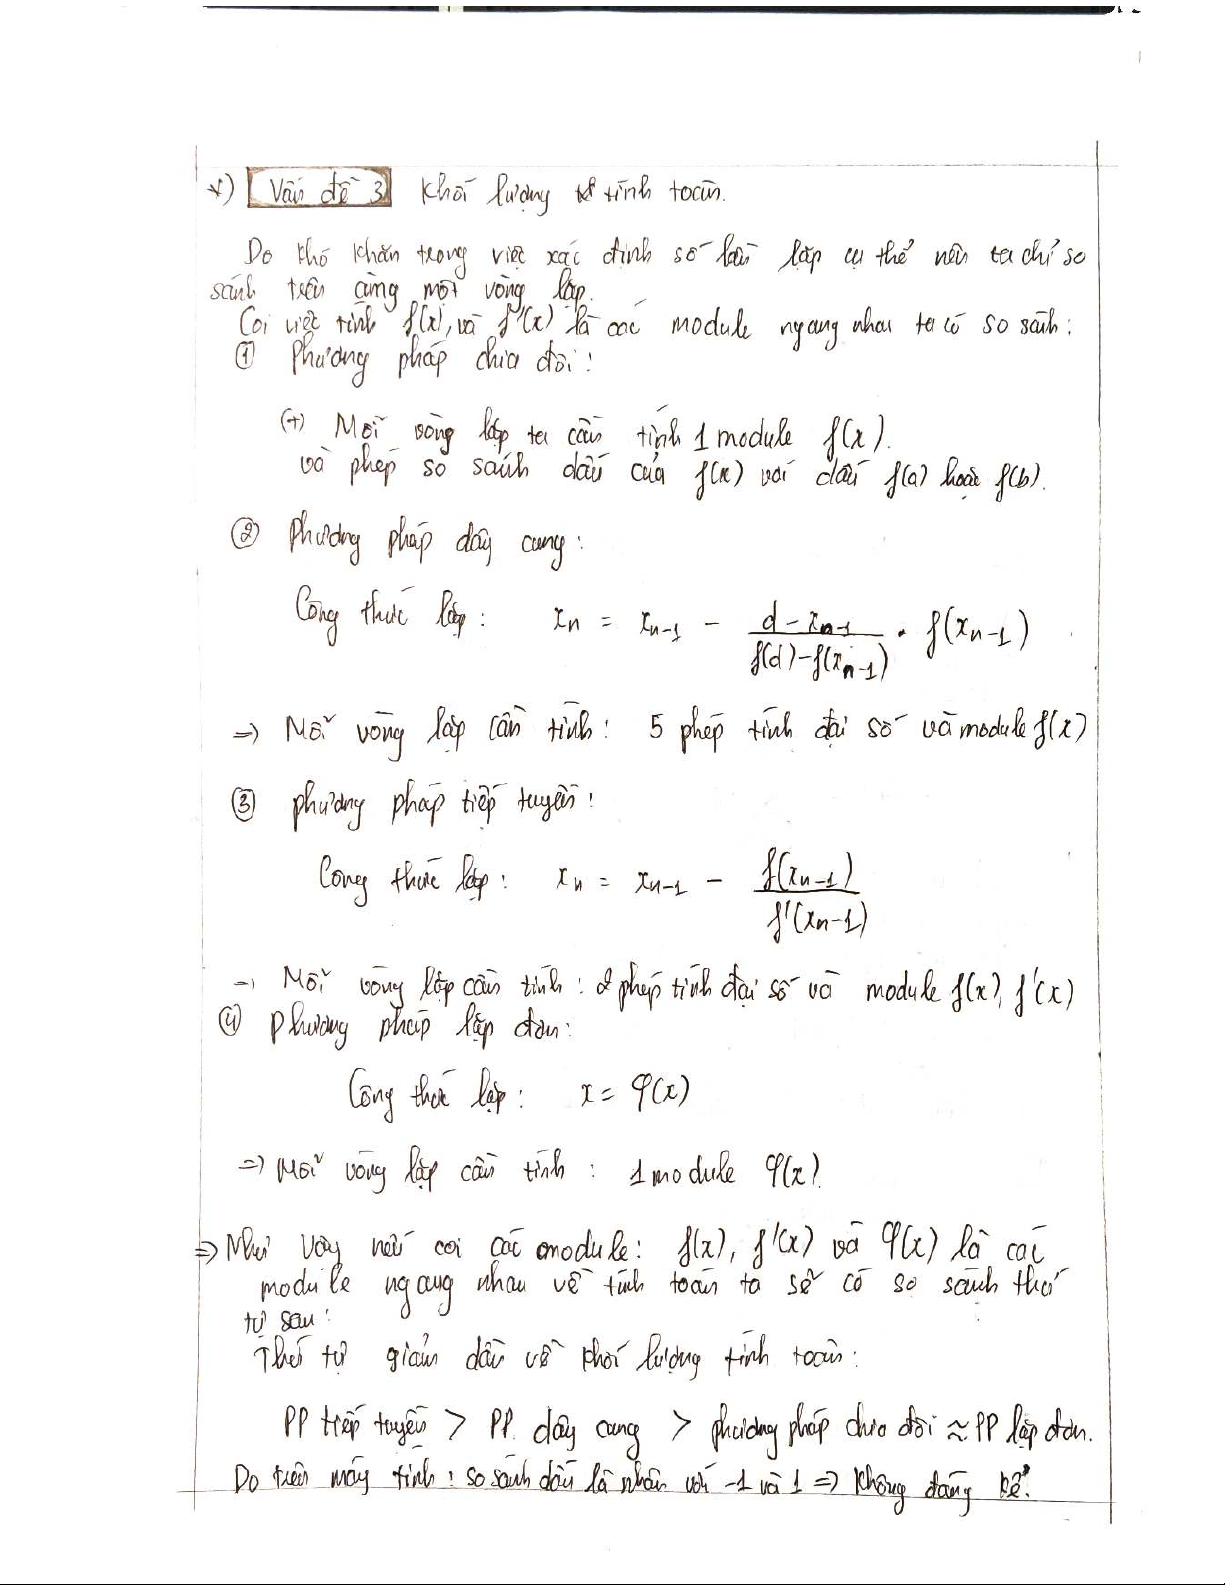 *) Vấn đề 3 Khối lượng tính toán.
Do khó khăn trong việc xác định số lần lặp cụ thể nên ta chỉ so
sánh trên cùng một vòng lặp.
Coi việc tính f(x), và f'(x) là các module ngang nhau ta có so sánh:
① Phương pháp chia đôi:
(+) Mỗi vòng lặp ta cần tính 1 module f(x).
và phép so sánh dấu của f(x) với dấu f(a) hoặc f(b).
② Phương pháp dây cung:
Công thức lặp: xₙ = xₙ₋₁ - (d - xₙ₋₁)/(f(d) - f(xₙ₋₁)) . f(xₙ₋₁)
=> Mỗi vòng lặp cần tính: 5 phép tính đại số và module f(x)
③ phương pháp tiếp tuyến:
Công thức lặp: xₙ = xₙ₋₁ - f(xₙ₋₁)/f'(xₙ₋₁)
→ Mỗi vòng lặp cần tính: 2 phép tính đại số và module f(x), f'(x)
④ Phương pháp lặp đơn:
Công thức lặp: x = φ(x)
=> Mỗi vòng lặp cần tính: 1 module φ(x).
=> Như vậy nếu coi các module: f(x), f'(x) và φ(x) là các
module ngang nhau về tính toán ta sẽ có so sánh thứ
tự sau:
Thứ tự giảm dần về khối lượng tính toán:
PP tiếp tuyến > PP. dây cung > phương pháp chia đôi ≈ PP lặp đơn.
Do trên máy tính: so sánh dấu là nhân với -1 và 1 => không đáng kể.